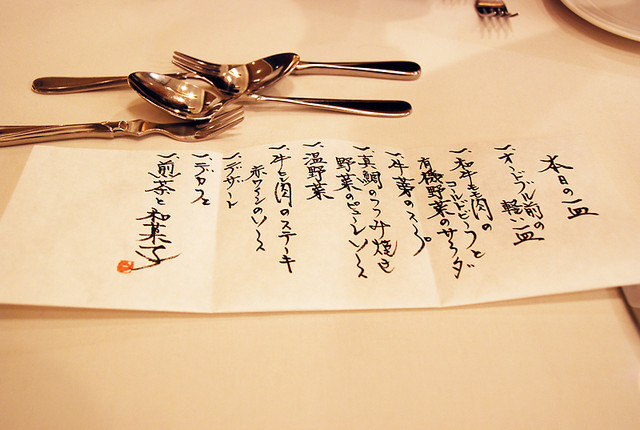 本日の一皿
一、オードブル前の
軽い一皿
一、和牛もも肉の
コールドビーフと
有機野菜のサラダ
一、牛蒡のスープ
一、真鯛のつつみ焼き
野菜のピューレソース
一、温野菜
一、牛もも肉のステーキ
赤ワインのソース
一、デザート
一、デカフェ
一、煎茶と和菓子